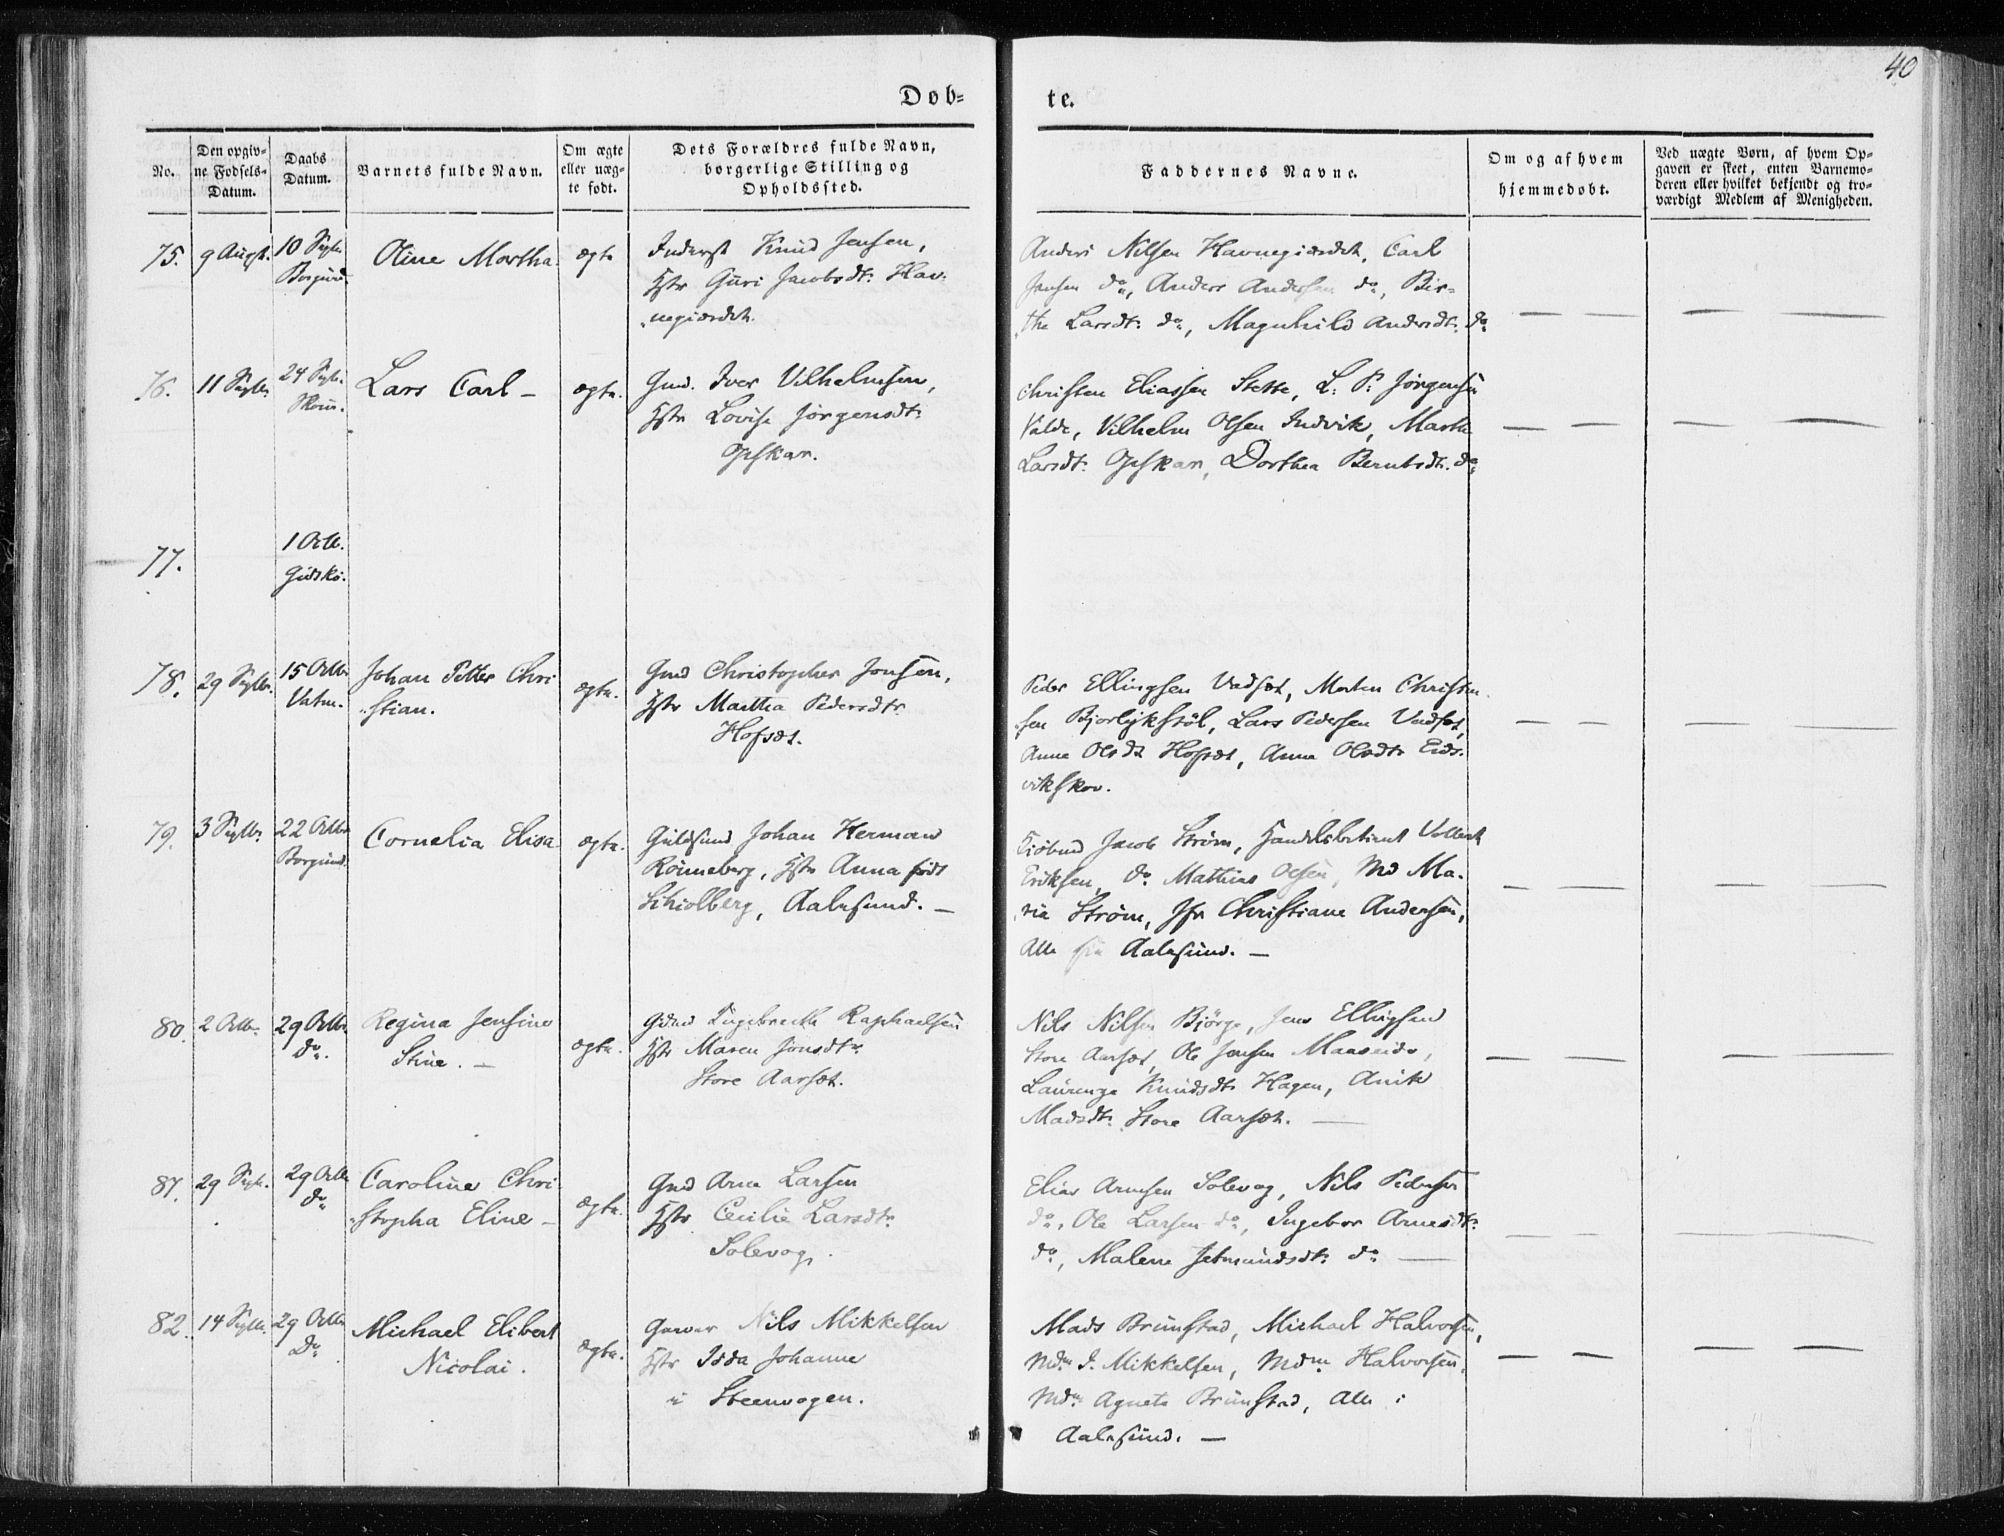 40
Døb=
te.
No.
Den opgiv=
ne Fødsels=
Datum.
Daabs
Datum.
Barnets fulde Navn.
Om ægte
eller uæg=
te født.
Dets Forældres fulde Navn,
borgerlige Stilling og
Opholdssted.
Faddernes Navne.
Om og af hvem
hjemmedøbt.
Ved uægte Børn, af hvem Op=
gaven er skeet, enten Barnemo=
deren eller hvilket bekjendt og tro=
værdigt Medlem af Menigheden.
75.
9 August.
10 Septbr.
Borgund.
Oline Martha
ægte
Inderst Knud Jensen,
Hstr Guri Jacobsdtr. Hav=
negiærdet.
Anders Nilsen Havnegiærdet, Carl
Jensen do, Anders Andersen do, Bir=
the Larsdtr. do, Magnhild Andersdtr. do
76.
11 Septbr
24 Septbr.
Skou.
Lars Carl —
ægte.
Gmd. Iver Vilhelmsen,
Hstr Lovise Jørgensdtr.
Opskar.
Christen Eliassen Stette, L. P. Jørgensen
Valde, Vilhelm Olsen Indvik, Marthe
Larsdtr. Opskar, Dorthea Berntsdtr. do
77.
1 Octb.
Gidskø.
78.
29 Septbr.
15 Octbr
Vatne.
Johan Petter Chri
stian.
ægte.
Gmd Christopher Jonsen,
Hstr Martha Pedersdtr.
Hofsæt.
Peder Ellingsen Vadset, Morten Christen
sen Bjørlykstøl, Lars Pedersen Vadset,
Anne Olsdtr Hofsæt, Anne Olsdtr Eids=
vikskov.
79.
3 Septbr
22 Octbr
Borgund
Cornelia Elisa
ægte.
Guldsmd Johan Herman
Rønneberg, Hstr Anna født
Schiolberg, Aalesund. —
Kiøbmd Jacob Strøm, Handelsbetient Vollert
Eriksen, do. Mathias Olsen, Md Ma=
ria Strøm, Jfr Christiane Andersen,
Alle fra Aalesund. —
80.
2 Octbr.
29 Octbr
do.
Regina Jensine
Stine. —
ægte.
Gdmd Ingebrecth Raphaelsen
Hstr Maren Jonsdtr.
Store Aarset.
Nils Nilsen Bjørge, Jens Ellingsen
Store Aarset, Ole Jensen Maaseide,
Laurenze Knudsdtr Hagen, Anik
Madsdtr. Store Aarset. —
81.
29 Septbr.
29 Octbr
do
Caroline Chri
stopha Eline —
ægte.
Gmd Arne Larsen
Hstr Cecilie Larsdtr.
Solevog.
Elias Arnesen Solevog, Nils Pedersen
do, Ole Larsen do, Ingebor Arnesdtr.
do, Malene Jetmundsdtr. do —
82.
14 Septbr.
29 Octbr
Do
Michael Elibert
Nicolai.
ægte.
Garver Nils Mikkelsen
Hstr Idda Johanne
i Steenvogen.
Mads Brunstad, Michael Halvorsen,
Mdm J. Mikkelsen, Mdm Halvorsen,
Mdm Agnete Brunstad, Alle i
Aalesund. —